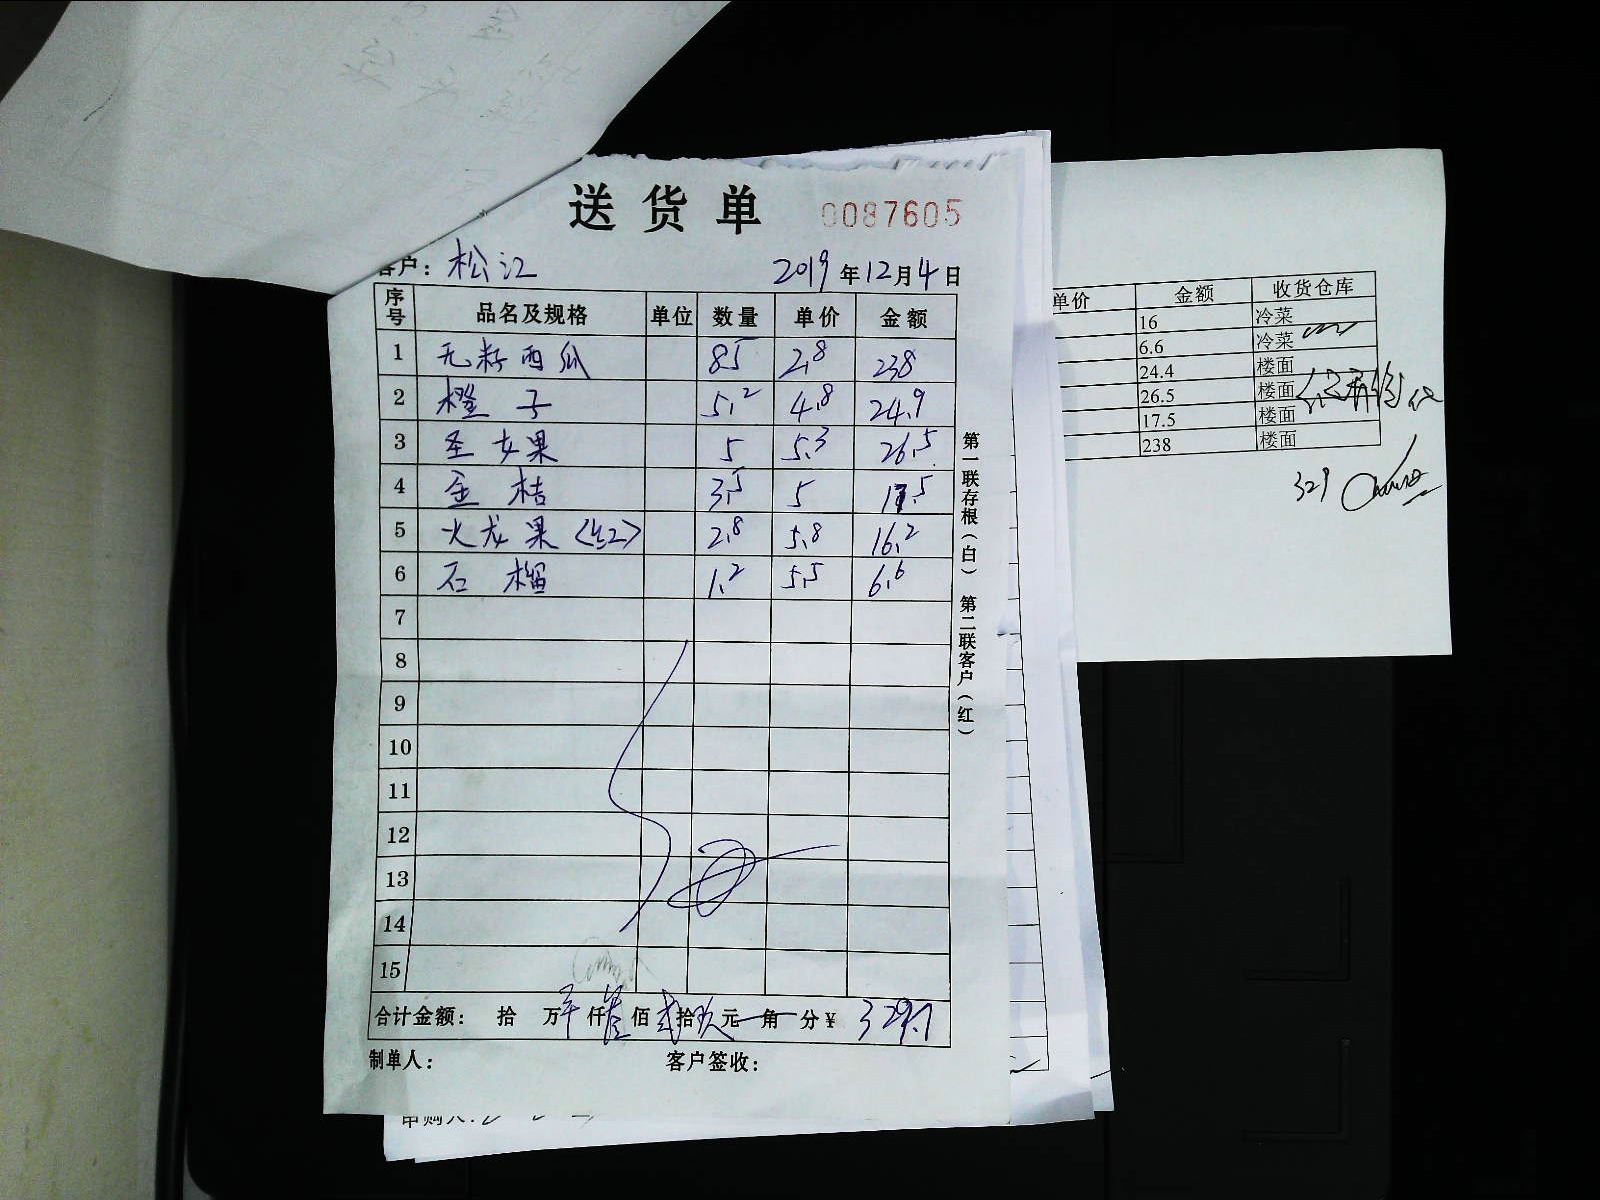 送货单 0087605
客户: 松江 2019年12月4日
序号 品名及规格 单位 数量 单价 金额
1 无籽西瓜 85 2.8 238
2 橙子 5.2 4.8 24.9
3 圣女果 5 5.3 26.5
4 金桔 3.5 5 17.5
5 火龙果<红> 2.8 5.8 16.2
6 石榴 1.2 5.5 6.6
7
8
9
10
11
12
13
14
15
合计金额: 拾 万 仟叁佰贰拾玖元 角 分¥ 329.7
制单人: 客户签收:
第一联存根(白) 第二联客户(红)
单价 金额 收货仓库
16 冷菜
6.6 冷菜
24.4 楼面
26.5 楼面
17.5 楼面
238 楼面
329